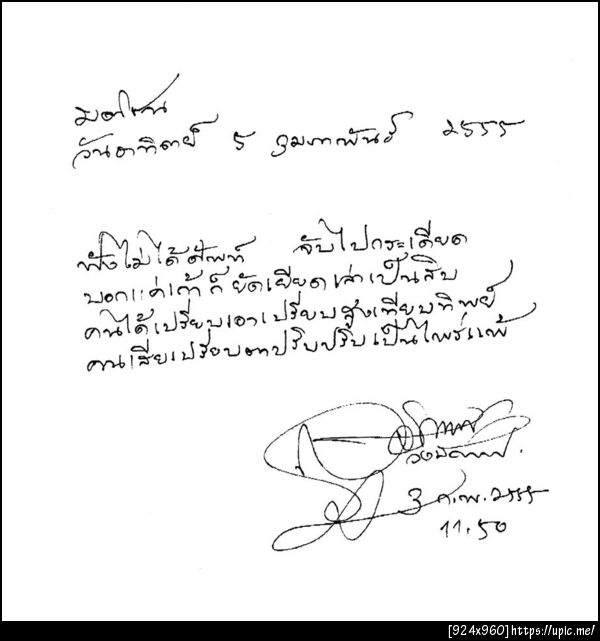 มติชน
วันอาทิตย์ 5 กุมภาพันธ์ 2555
ฟังไม่ได้ศัพท์ จับไปกระเดียด
บอกแค่เก้าก็ยัดเยียดเล่าเป็นสิบ
คนได้เปรียบเอาเปรียบสูงเทียบทิพย์
คนเสียเปรียบตาปริบปริบเป็นไพร่แพ้
3 ก.พ. 2555
11.50
[924x960]https://upic.me/